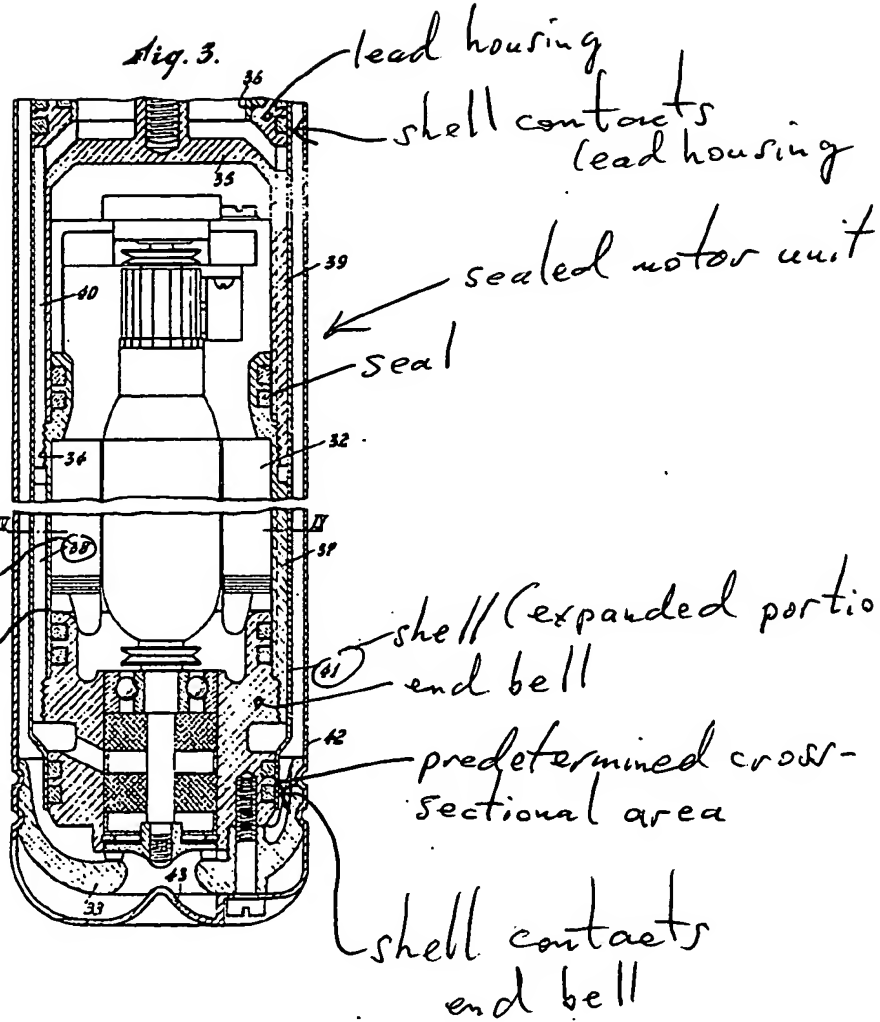 Fig. 3.
lead housing
36
shell contacts
lead housing
35
sealed motor unit
39
40
seal
34
32
IV
38
37
shell (expanded portio
41
end bell
42
predetermined cross-
sectional area
33
43
shell contacts
end bell